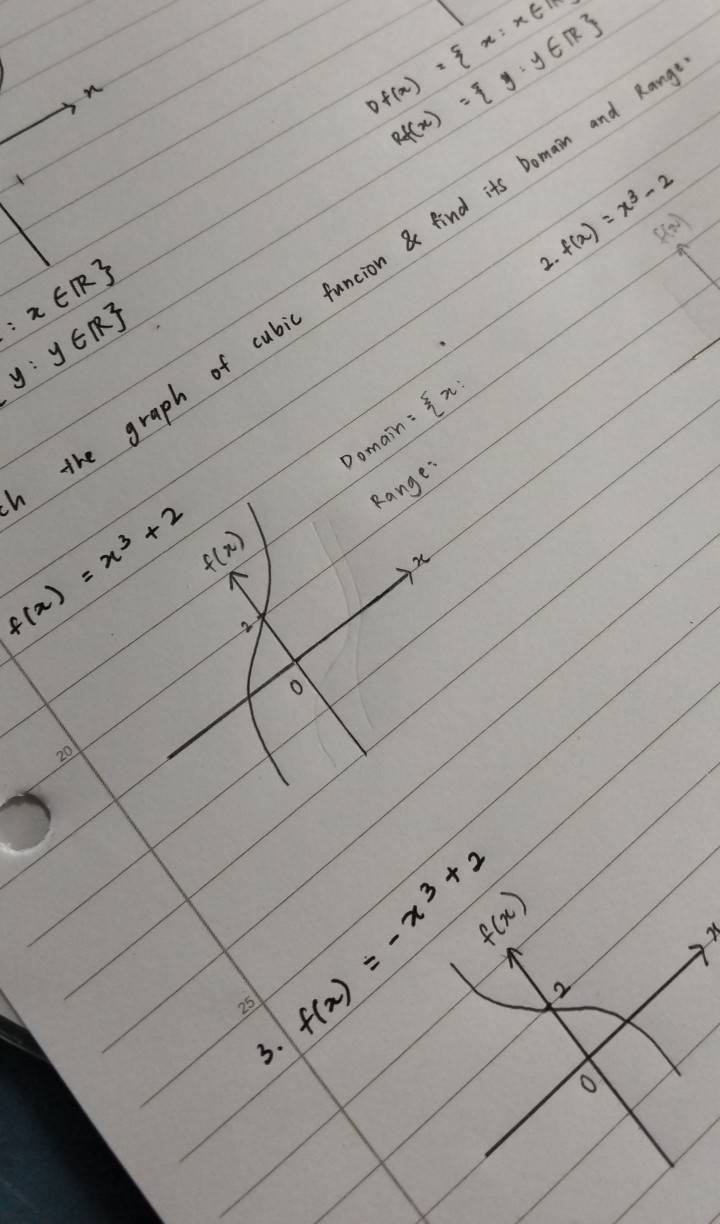 x
Df(x) = { x : x ∈ IR
Rf(x) = { y : y ∈ IR }
: x ∈ IR }
y : y ∈ IR }
ch the graph of cubic funcion & find its Domain and Range.
f(x) = x³ + 2
2. f(x) = x³ - 2
f(x)
Domain = { x :
Range :
f(x)
x
2
0
20
3. f(x) = -x³ + 2
f(x)
x
2
0
25